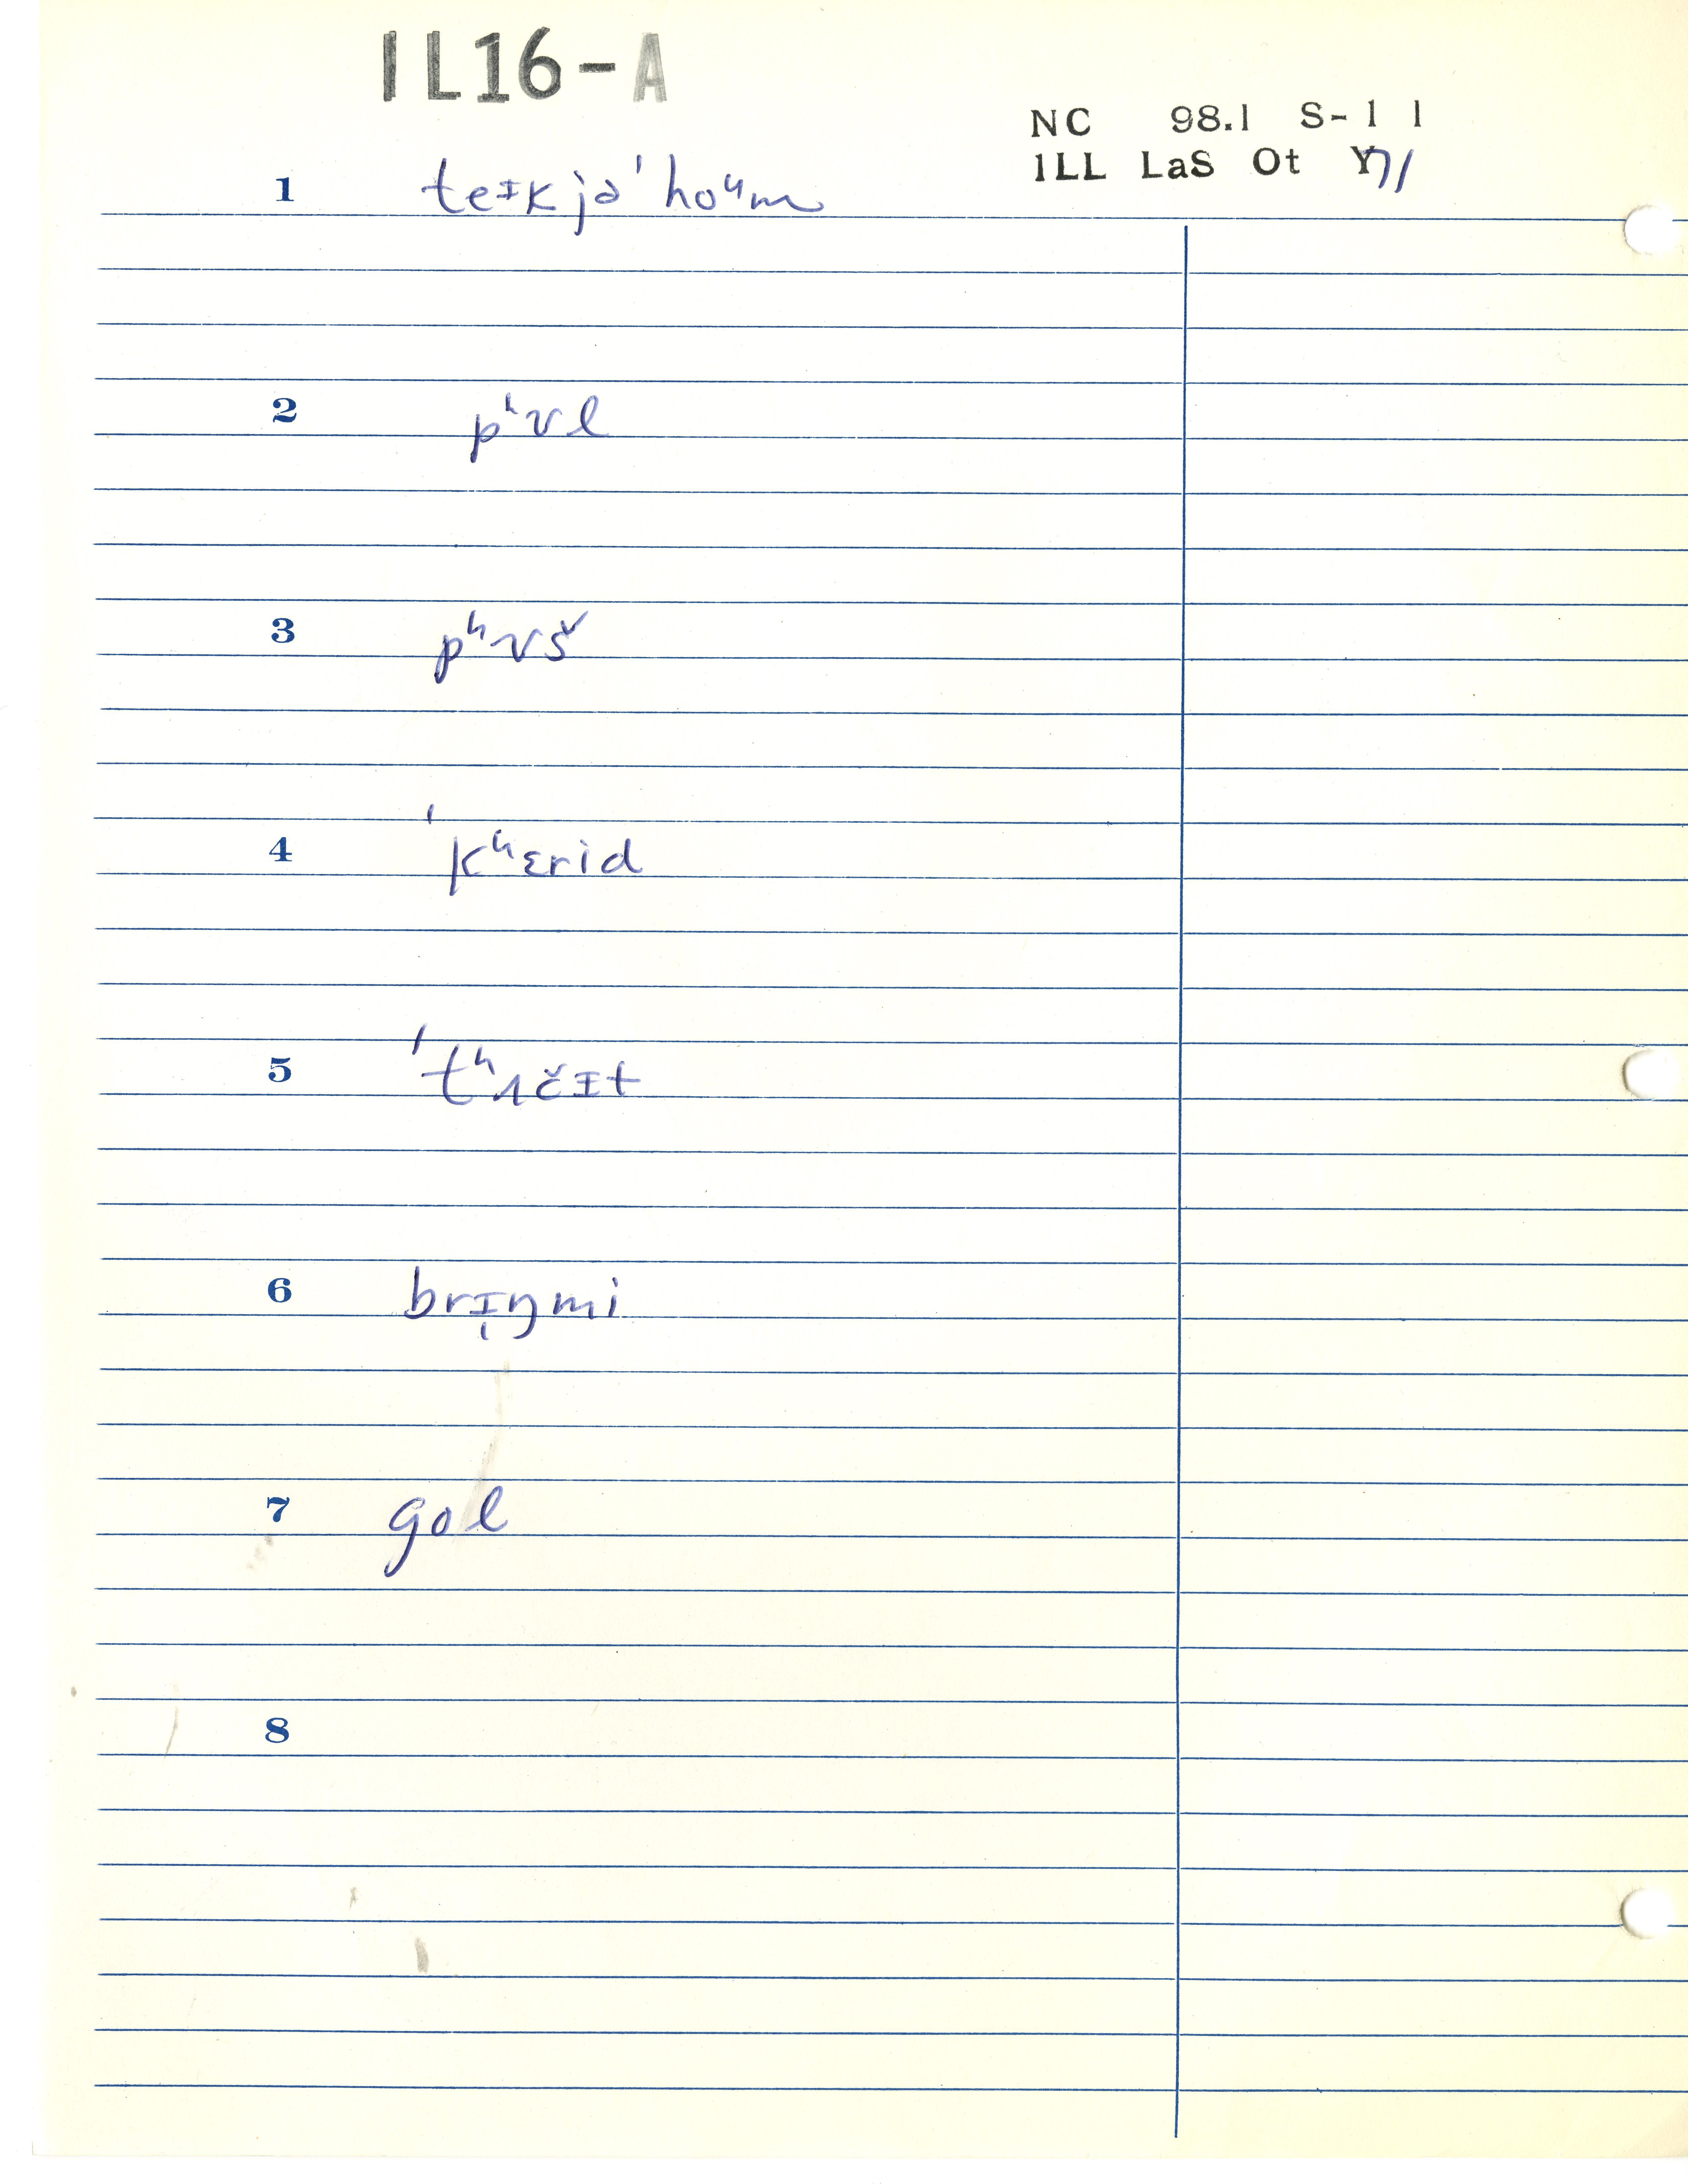 IL16-A
NC 98.1 S-11
ILL LaS Ot Y71
1 teɪkjə ˈhoᵘm
2 pʰʊl
3 pʰʊš
4 ˈkʰɛrid
5 ˈtʰʌčɪt
6 brɪ̩ŋmi
7 gol
8